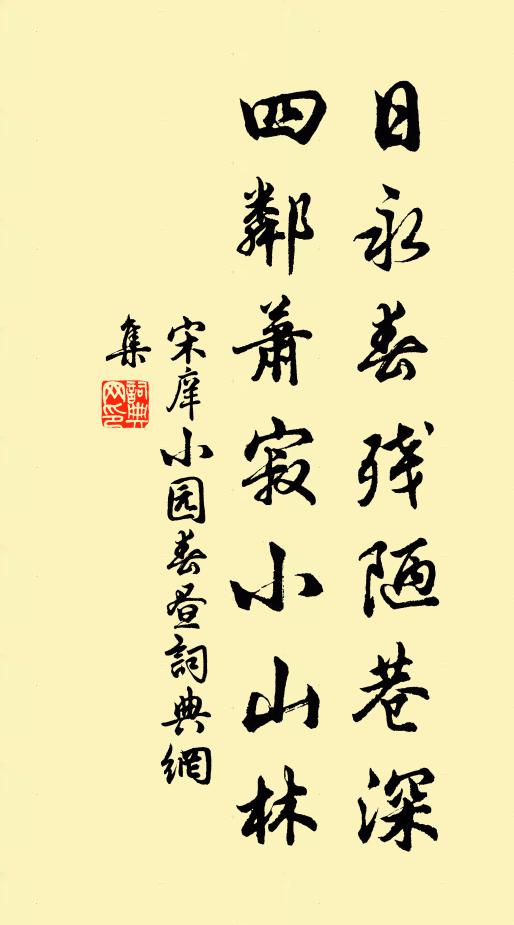 日永春残陋巷深
四鄰蕭寂小山林
宋庠小园春昼詞典網
集
詞典网印